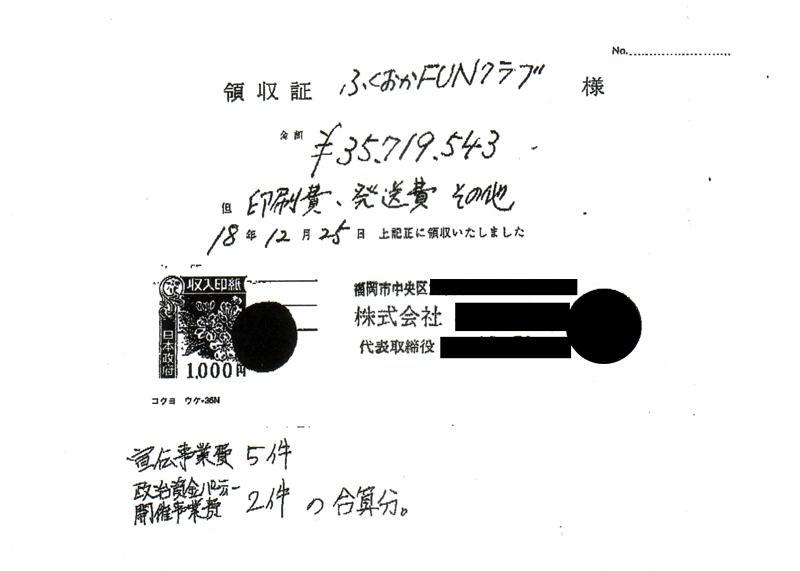 No.
領収証 ふくおかFUNクラブ 様
金額 ¥35,719,543
但 印刷費、発送費 その他
18年12月25日 上記正に領収いたしました
収入印紙
日本政府
1,000円
福岡市中央区
株式会社
代表取締役
コクヨ ウケ-36N
宣伝事業費 5件
政治資金パーティー
開催事業費 2件 の合算分。